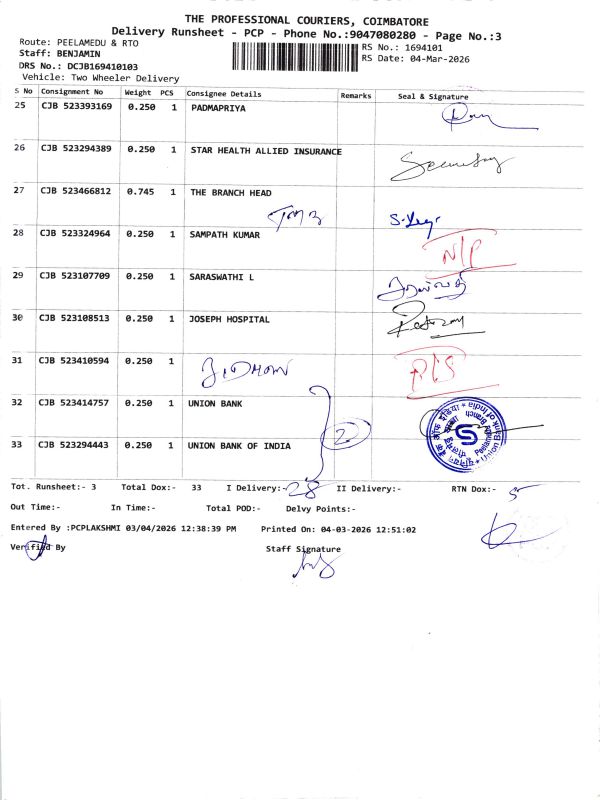 THE PROFESSIONAL COURIERS, COIMBATORE
Delivery Runsheet - PCP - Phone No.:9047080280 - Page No.:3
Route: PEELAMEDU & RTO
Staff: BENJAMIN
DRS No.: DCJB169410103
Vehicle: Two Wheeler Delivery
RS No.: 1694101
RS Date: 04-Mar-2026
S No Consignment No Weight PCS Consignee Details Remarks Seal & Signature
25 CJB 523393169 0.250 1 PADMAPRIYA
26 CJB 523294389 0.250 1 STAR HEALTH ALLIED INSURANCE
27 CJB 523466812 0.745 1 THE BRANCH HEAD
TMB
28 CJB 523324964 0.250 1 SAMPATH KUMAR N/P
29 CJB 523107709 0.250 1 SARASWATHI L
30 CJB 523108513 0.250 1 JOSEPH HOSPITAL
31 CJB 523410594 0.250 1
32 CJB 523414757 0.250 1 UNION BANK
2
33 CJB 523294443 0.250 1 UNION BANK OF INDIA
Tot. Runsheet:- 3 Total Dox:- 33 I Delivery:- 28 II Delivery:- RTN Dox:- 5
Out Time:- In Time:- Total POD:- Delvy Points:-
Entered By :PCPLAKSHMI 03/04/2026 12:38:39 PM Printed On: 04-03-2026 12:51:02
Verified By Staff Signature